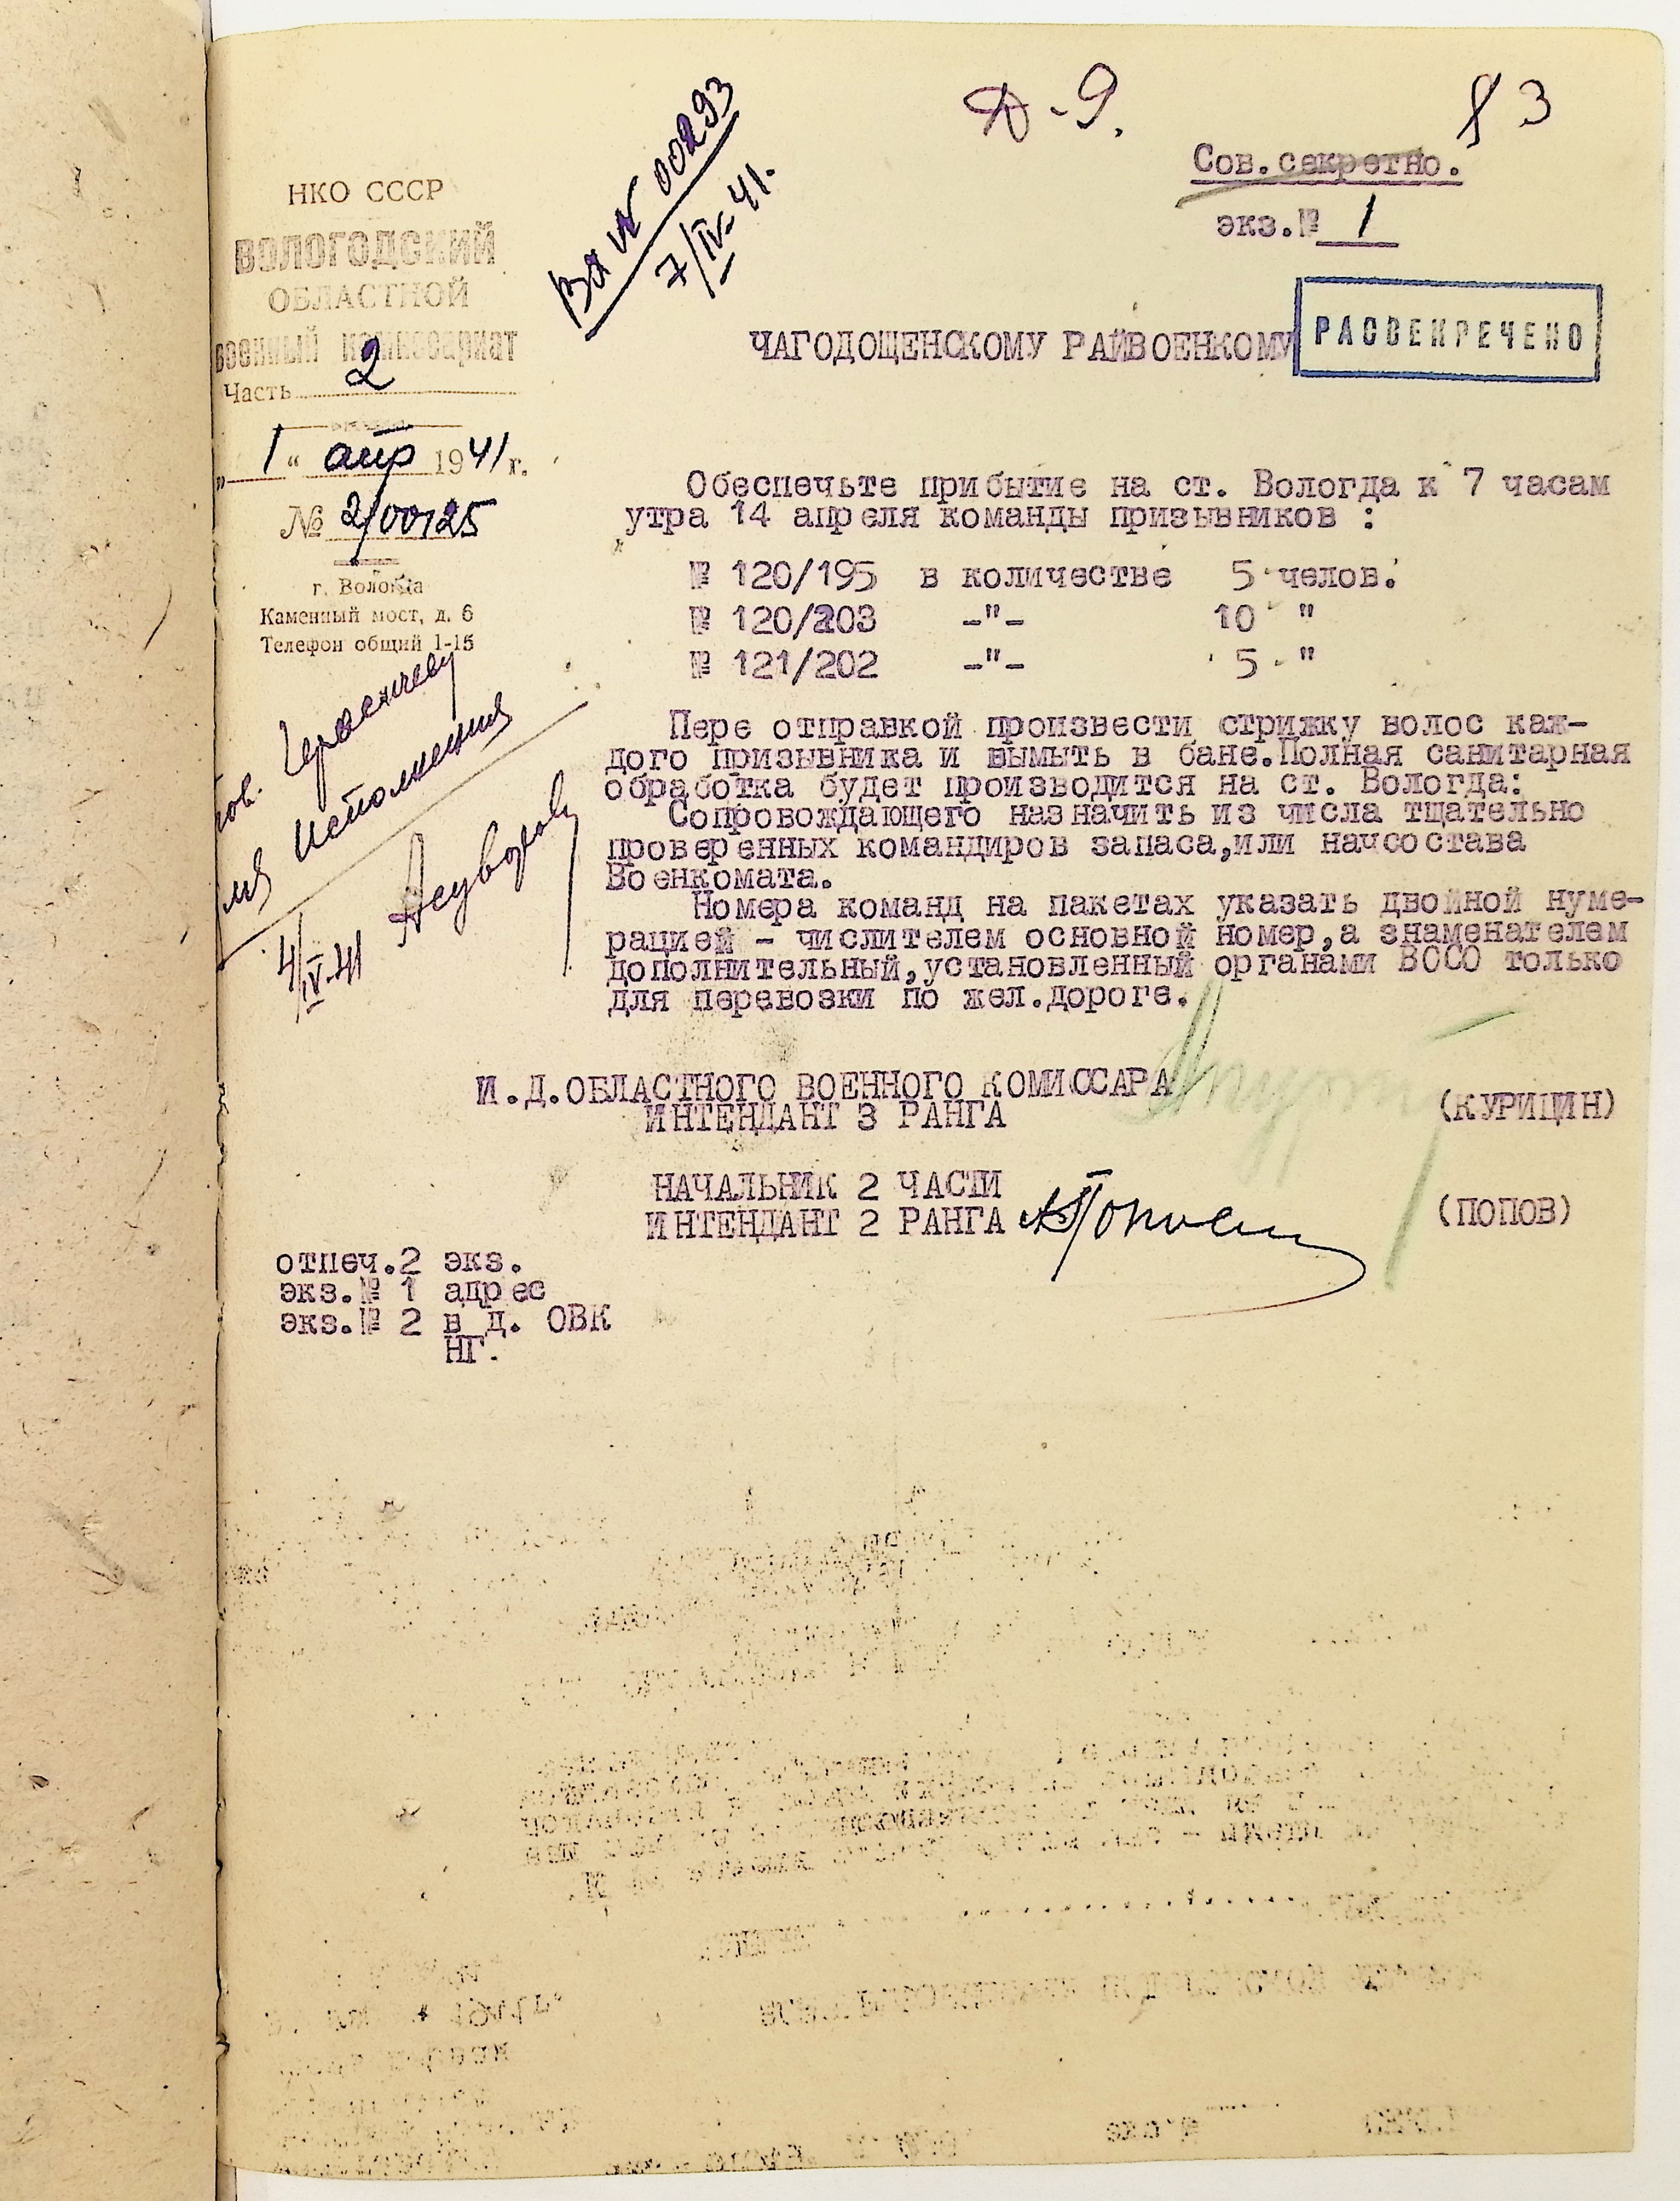 Д-9.
83
Сов.секретно.
экз.№ 1
Вх № 00293
7/IV-41.
НКО СССР
ВОЛОГОДСКИЙ
ОБЛАСТНОЙ
военный комиссариат
Часть 2
„1“ апр 1941 г.
№ 2/00125
г. Вологда
Каменный мост, д. 6
Телефон общий 1-15
РАССЕКРЕЧЕНО
ЧАГОДОЩЕНСКОМУ РАЙВОЕНКОМУ
Обеспечьте прибытие на ст. Вологда к 7 часам
утра 14 апреля команды призывников :
№ 120/195 в количестве 5 челов.
№ 120/203 -"- 10 "
№ 121/202 -"- 5 "
Пере отправкой произвести стрижку волос каж-
дого призывника и вымыть в бане.Полная санитарная
обработка будет производится на ст. Вологда:
Сопровождающего назначить из числа тщательно
проверенных командиров запаса,или начсостава
Военкомата.
Номера команд на пакетах указать двойной нуме-
рацией - числителем основной номер,а знаменателем
дополнительный,установленный органами ВОСО только
для перевозки по жел.дороге.
исполнения
4/IV-41
И.Д.ОБЛАСТНОГО ВОЕННОГО КОМИССАРА
ИНТЕНДАНТ 3 РАНГА (КУРИЦИН)
НАЧАЛЬНИК 2 ЧАСТИ
ИНТЕНДАНТ 2 РАНГА (ПОПОВ)
отпеч.2 экз.
экз.№ 1 адрес
экз.№ 2 в д. ОВК
НГ.